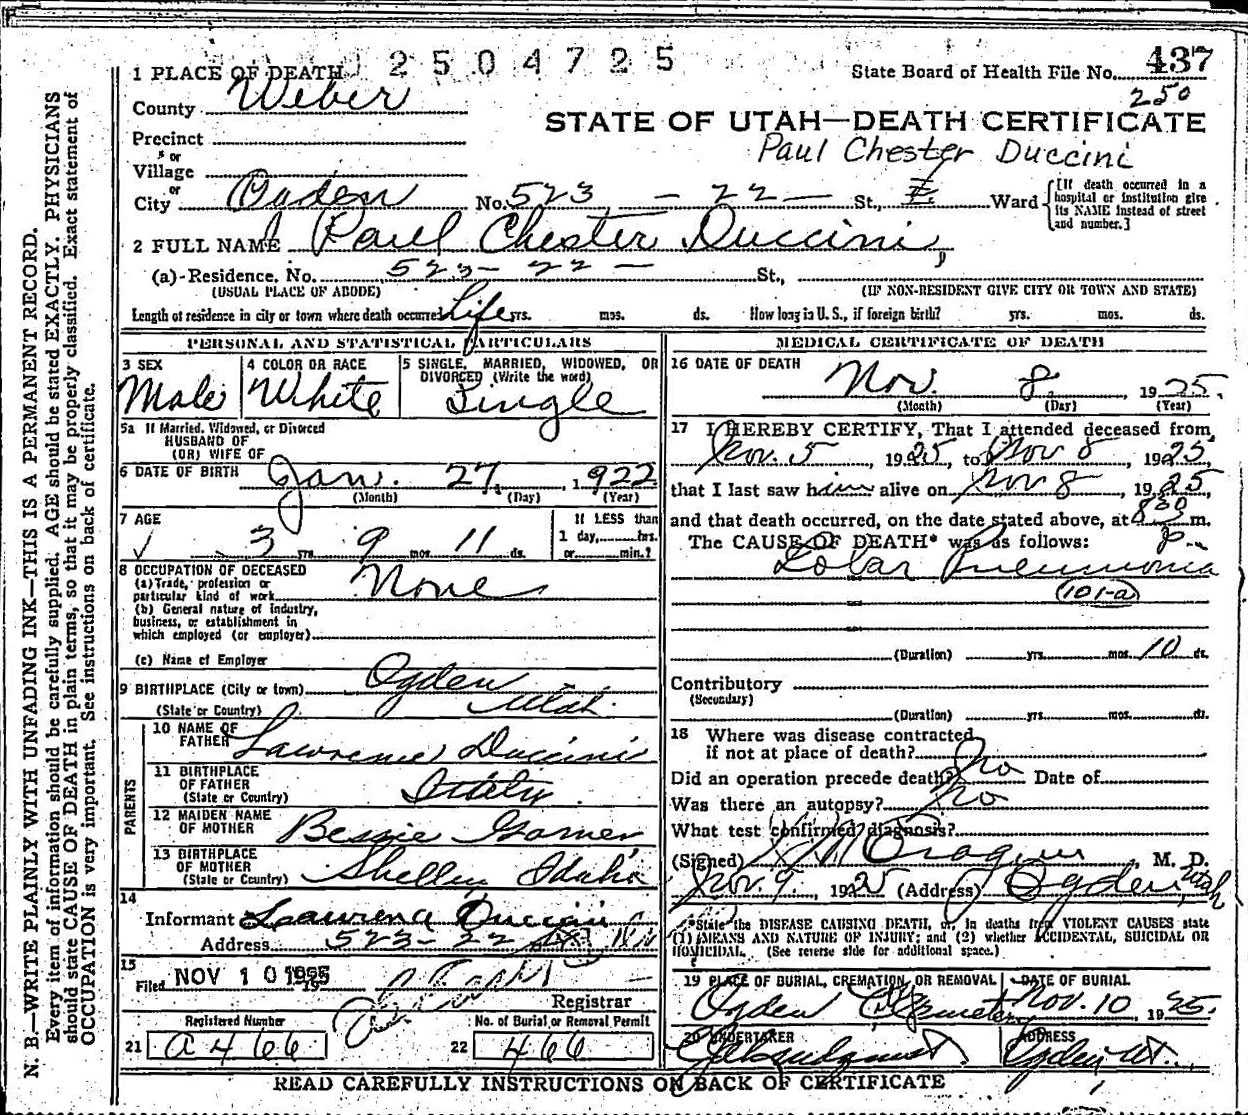 2504725
437
State Board of Health File No.
250
1 PLACE OF DEATH
County Weber
STATE OF UTAH—DEATH CERTIFICATE
Precinct
Paul Chester Duccini
or
Village
or
City Ogden No. 523 — 22 — St., Ward
[If death occurred in a hospital or institution give its NAME instead of street and number.]
2 FULL NAME Paul Chester Duccini
(a) Residence. No. 523 — 22 — St.,
(USUAL PLACE OF ABODE) (IF NON-RESIDENT GIVE CITY OR TOWN AND STATE)
Length of residence in city or town where death occurred Life yrs. mos. ds. How long in U. S., if foreign birth? yrs. mos. ds.
PERSONAL AND STATISTICAL PARTICULARS
3 SEX
Male
4 COLOR OR RACE
White
5 SINGLE, MARRIED, WIDOWED, OR
DIVORCED (Write the word)
Single
5a If Married, Widowed, or Divorced
HUSBAND OF
(OR) WIFE OF
6 DATE OF BIRTH Jan. 27, 1922
(Month) (Day) (Year)
7 AGE
3 yrs. 9 mos. 11 ds.
If LESS than
1 day,......hrs.
or......min.?
8 OCCUPATION OF DECEASED
(a) Trade, profession or
particular kind of work None
(b) General nature of industry,
business, or establishment in
which employed (or employer)
(c) Name of Employer
9 BIRTHPLACE (City or town) Ogden
(State or Country) Utah
PARENTS
10 NAME OF
FATHER Lawrence Duccini
11 BIRTHPLACE
OF FATHER
(State or Country) Italy
12 MAIDEN NAME
OF MOTHER Bessie Garner
13 BIRTHPLACE
OF MOTHER
(State or Country) Shelley Idaho
14
Informant Lawrence Duccini
Address 523 — 22
15
Filed NOV 10 1925
Registrar
Registered Number
21 a466
No. of Burial or Removal Permit
22 466
MEDICAL CERTIFICATE OF DEATH
16 DATE OF DEATH
Nov. 8, 1925.
(Month) (Day) (Year)
17 I HEREBY CERTIFY, That I attended deceased from
Nov. 5, 1925, to Nov 8, 1925,
that I last saw him alive on Nov 8, 1925,
and that death occurred, on the date stated above, at 830 m.
The CAUSE OF DEATH* was as follows: P
Lobar Pneumonia
(101-a)
(Duration) yrs. mos. 10 ds.
Contributory
(Secondary)
(Duration) yrs. mos. ds.
18 Where was disease contracted
if not at place of death?
Did an operation precede death? No Date of
Was there an autopsy? No
What test confirmed diagnosis?
(Signed) M. D.
Nov. 9, 1925 (Address) Ogden, Utah
*State the DISEASE CAUSING DEATH, or, in deaths from VIOLENT CAUSES state
(1) MEANS AND NATURE OF INJURY; and (2) whether ACCIDENTAL, SUICIDAL OR
HOMICIDAL. (See reverse side for additional space.)
19 PLACE OF BURIAL, CREMATION, OR REMOVAL
Ogden Cemetery
DATE OF BURIAL
Nov. 10 1925.
20 UNDERTAKER
ADDRESS
Ogden Ut.
READ CAREFULLY INSTRUCTIONS ON BACK OF CERTIFICATE
N. B.—WRITE PLAINLY WITH UNFADING INK—THIS IS A PERMANENT RECORD.
Every item of information should be carefully supplied. AGE should be stated EXACTLY. PHYSICIANS
should state CAUSE OF DEATH in plain terms, so that it may be properly classified. Exact statement of
OCCUPATION is very important. See instructions on back of certificate.